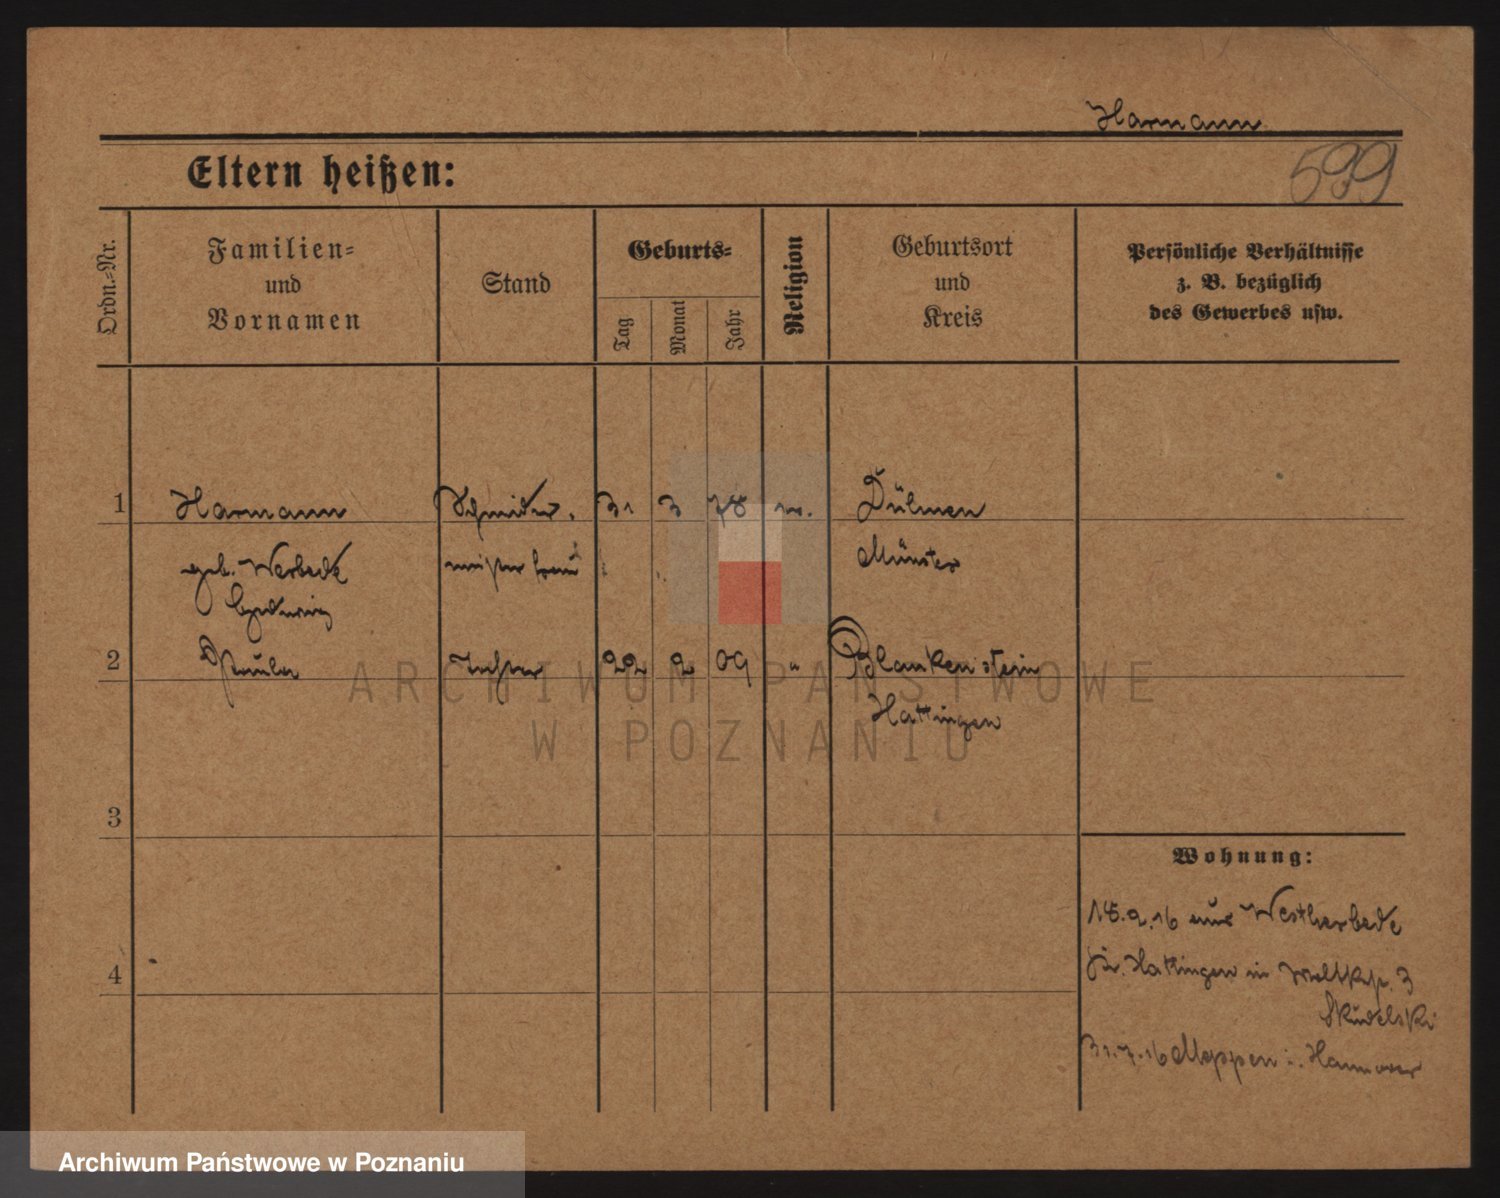 Hamann
Eltern heißen:
599
Ordn.-Nr.
Familien-
und
Vornamen
Stand
Geburts-
Tag
Monat
Jahr
Religion
Geburtsort
und
Kreis
Persönliche Verhältnisse
z. B. bezüglich
des Gewerbes usw.
1
Hamann
31 3 78
Dülmen
geb.
Münster
Hedwig
2
Paula
Tochter
22 2 09
"
Blankenstein
Hattingen
3
4
Wohnung:
18.2.16 aus Westherbede
Kr. Hattingen in 3
Skudelski
31.7.16 Meppen i. Hannover
ARCHIWUM PAŃSTWOWE
W POZNANIU
Archiwum Państwowe w Poznaniu